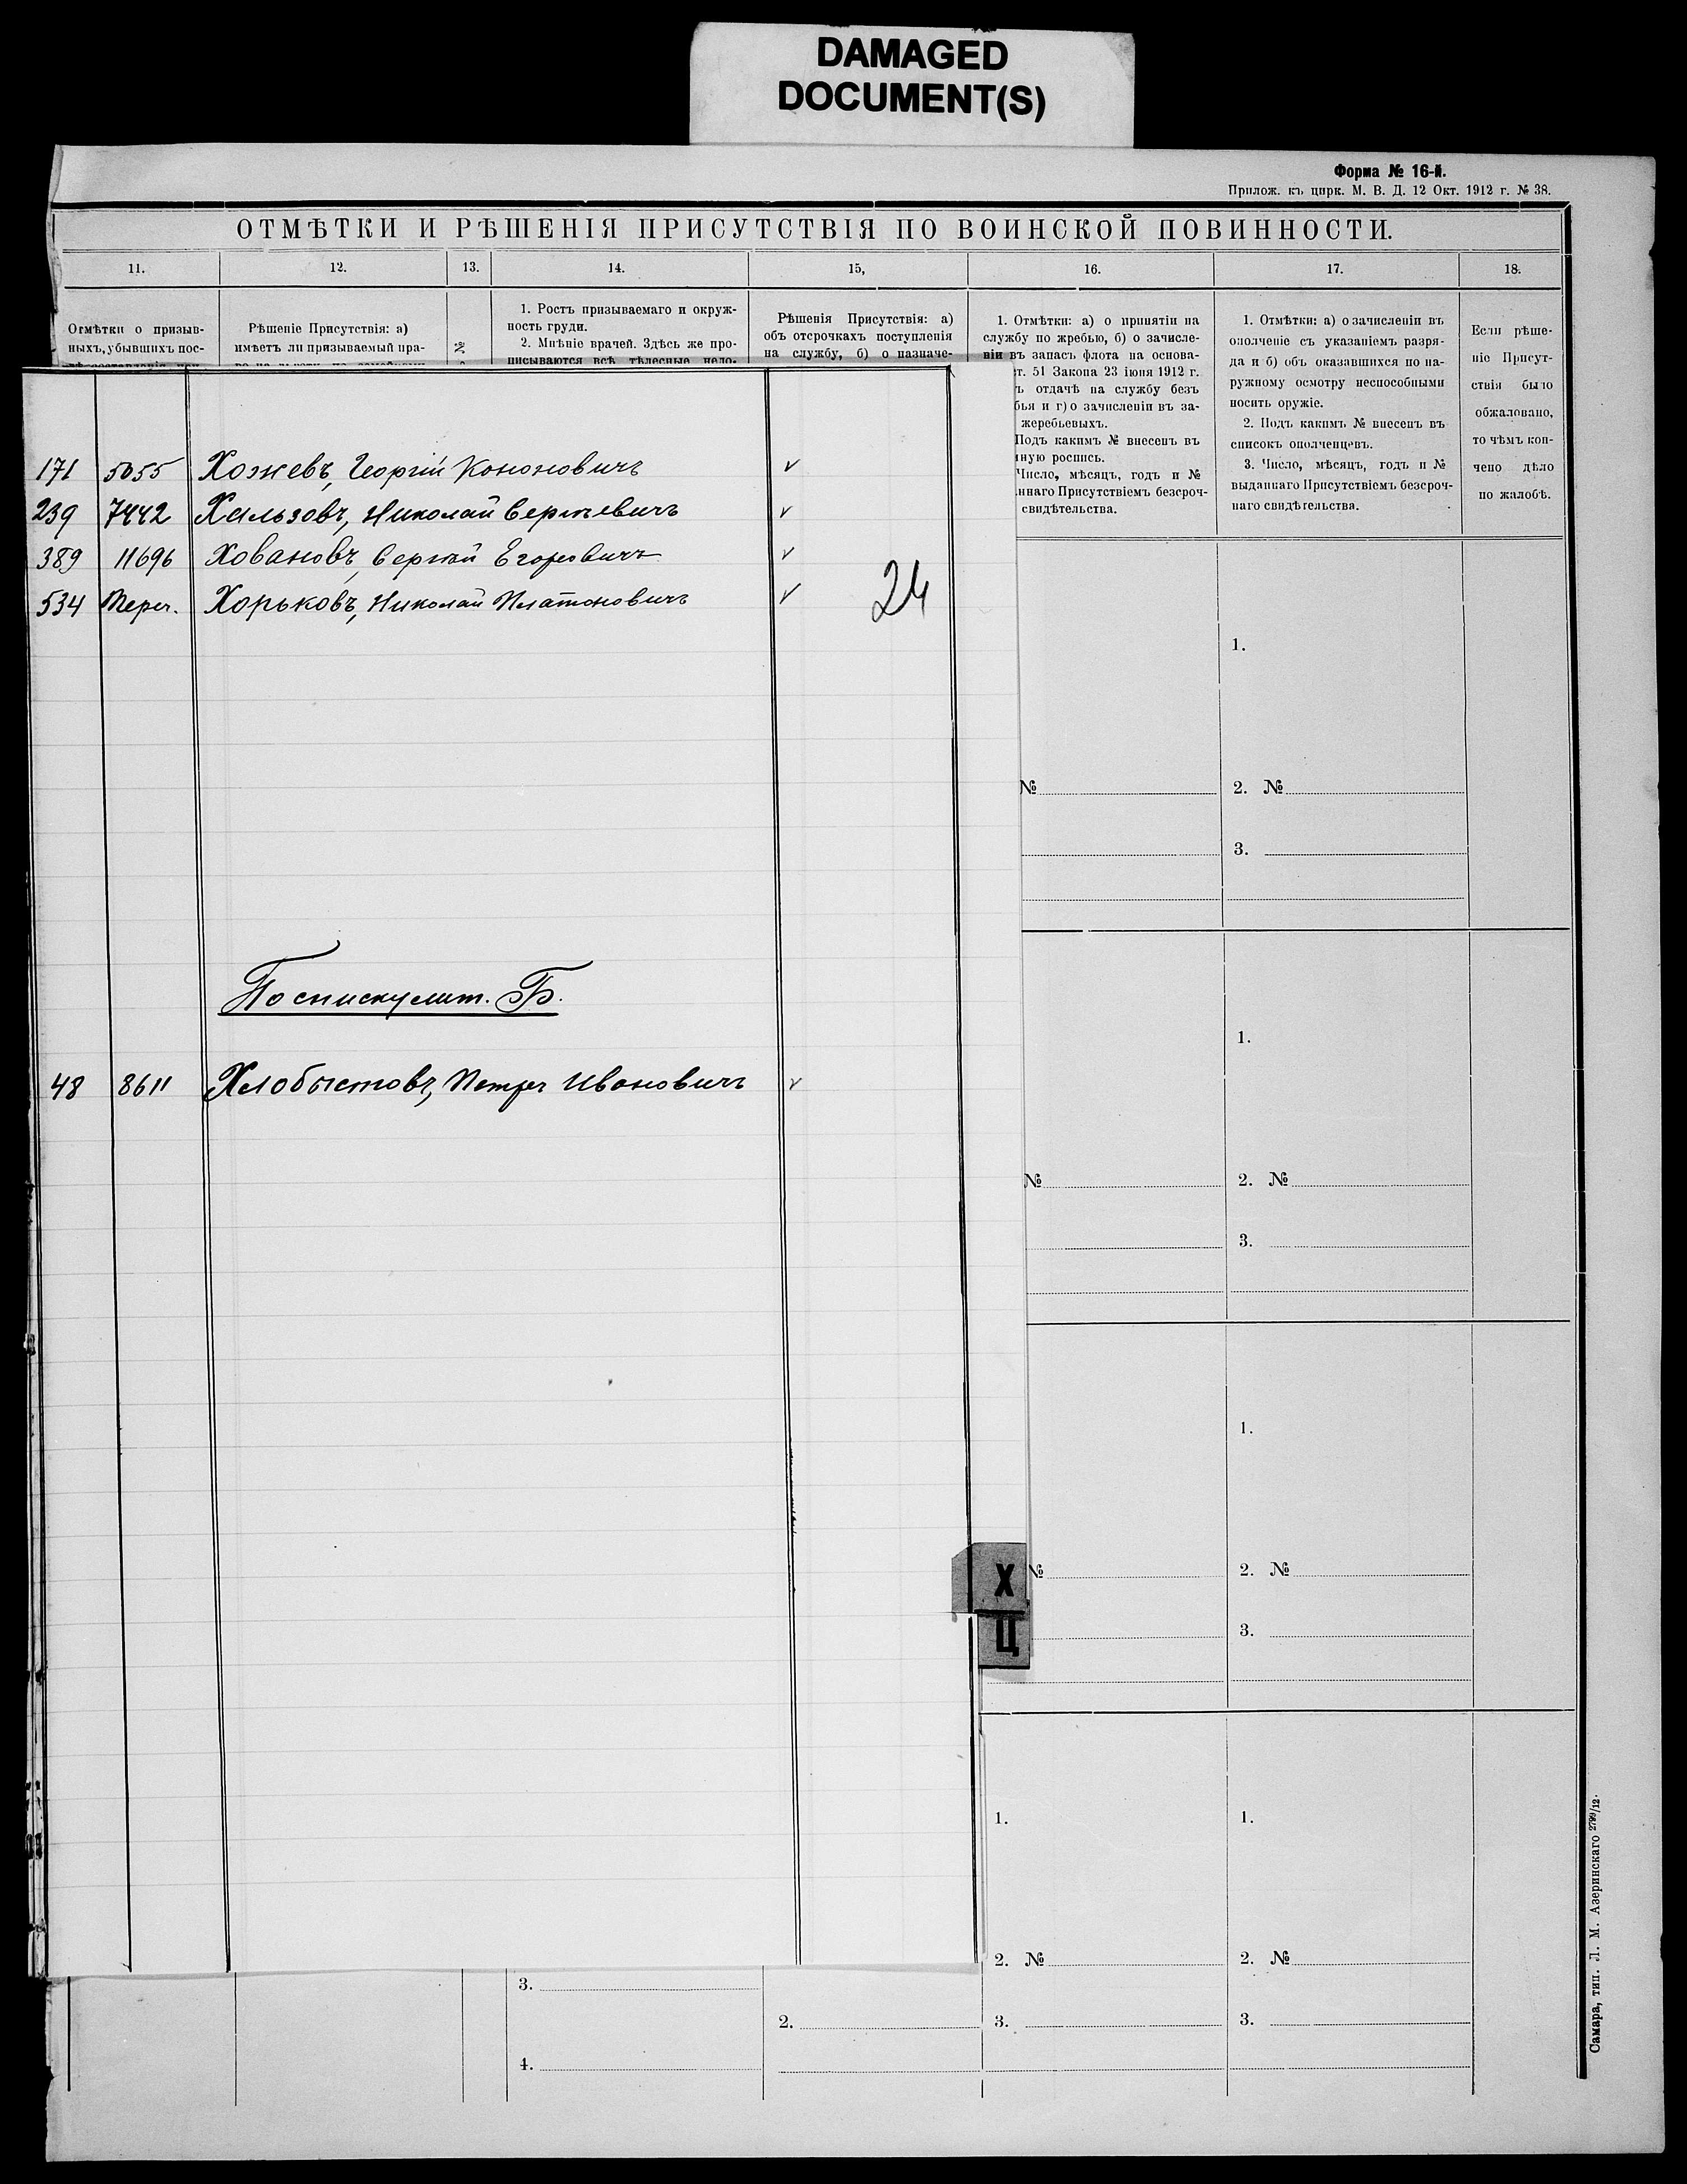 DAMAGED
DOCUMENT(S)
Форма № 16-й.
Прилож. къ цирк. М. В. Д. 12 Окт. 1912 г. № 38.
ОТМѢТКИ И РѢШЕНІЯ ПРИСУТСТВІЯ ПО ВОИНСКОЙ ПОВИННОСТИ.
11. 12. 13. 14. 15, 16. 17. 18.
Отмѣтки о призыв-
ныхъ, убывшихъ пос-
Рѣшеніе Присутствія: а)
имѣетъ ли призываемый пра-
№
1. Ростъ призываемаго и окруж-
ность груди.
2. Мнѣніе врачей. Здѣсь же про-
писываются всѣ тѣлесные недо-
Рѣшенія Присутствія: а)
объ отсрочкахъ поступленія
на службу, б) о назначе-
1. Отмѣтки: а) о принятіи на
службу по жребью, б) о зачисле-
ніи въ запасъ флота на основа-
ст. 51 Закона 23 іюня 1912 г.
ъ отдачѣ на службу безъ
бья и г) о зачисленіи въ за-
жеребьевыхъ.
Подъ какимъ № внесенъ въ
ную роспись.
Число, мѣсяцъ, годъ и №
ннаго Присутствіемъ безсроч-
свидѣтельства.
1. Отмѣтки: а) о зачисленіи въ
ополченіе съ указаніемъ разря-
да и б) объ оказавшихся по на-
ружному осмотру неспособными
носить оружіе.
2. Подъ какимъ № внесенъ въ
списокъ ополченцевъ.
3. Число, мѣсяцъ, годъ и №
выданнаго Присутствіемъ безсроч-
наго свидѣтельства.
Если рѣше-
ніе Присут-
ствія было
обжаловано,
то чѣмъ кон-
чено дѣло
по жалобѣ.
171 5055 Хожевъ, Георгій Кононовичъ v
239 7442 Хальзовъ, Николай Сергѣевичъ v
389 11696 Ховановъ, Сергѣй Егоровичъ v
534 Переч. Хорьковъ, Николай Платоновичъ v 24
По списку лит. Б.
48 8611 Хлобыстовъ, Петръ Ивановичъ v
1.
№ 2. №
3.
1.
№ 2. №
3.
1.
Х № 2. №
Ц 3.
1. 1.
2. № 2. №
3.
2. 3. 3.
4.
Самара, тип. Л. М. Азеринскаго 2799/12.